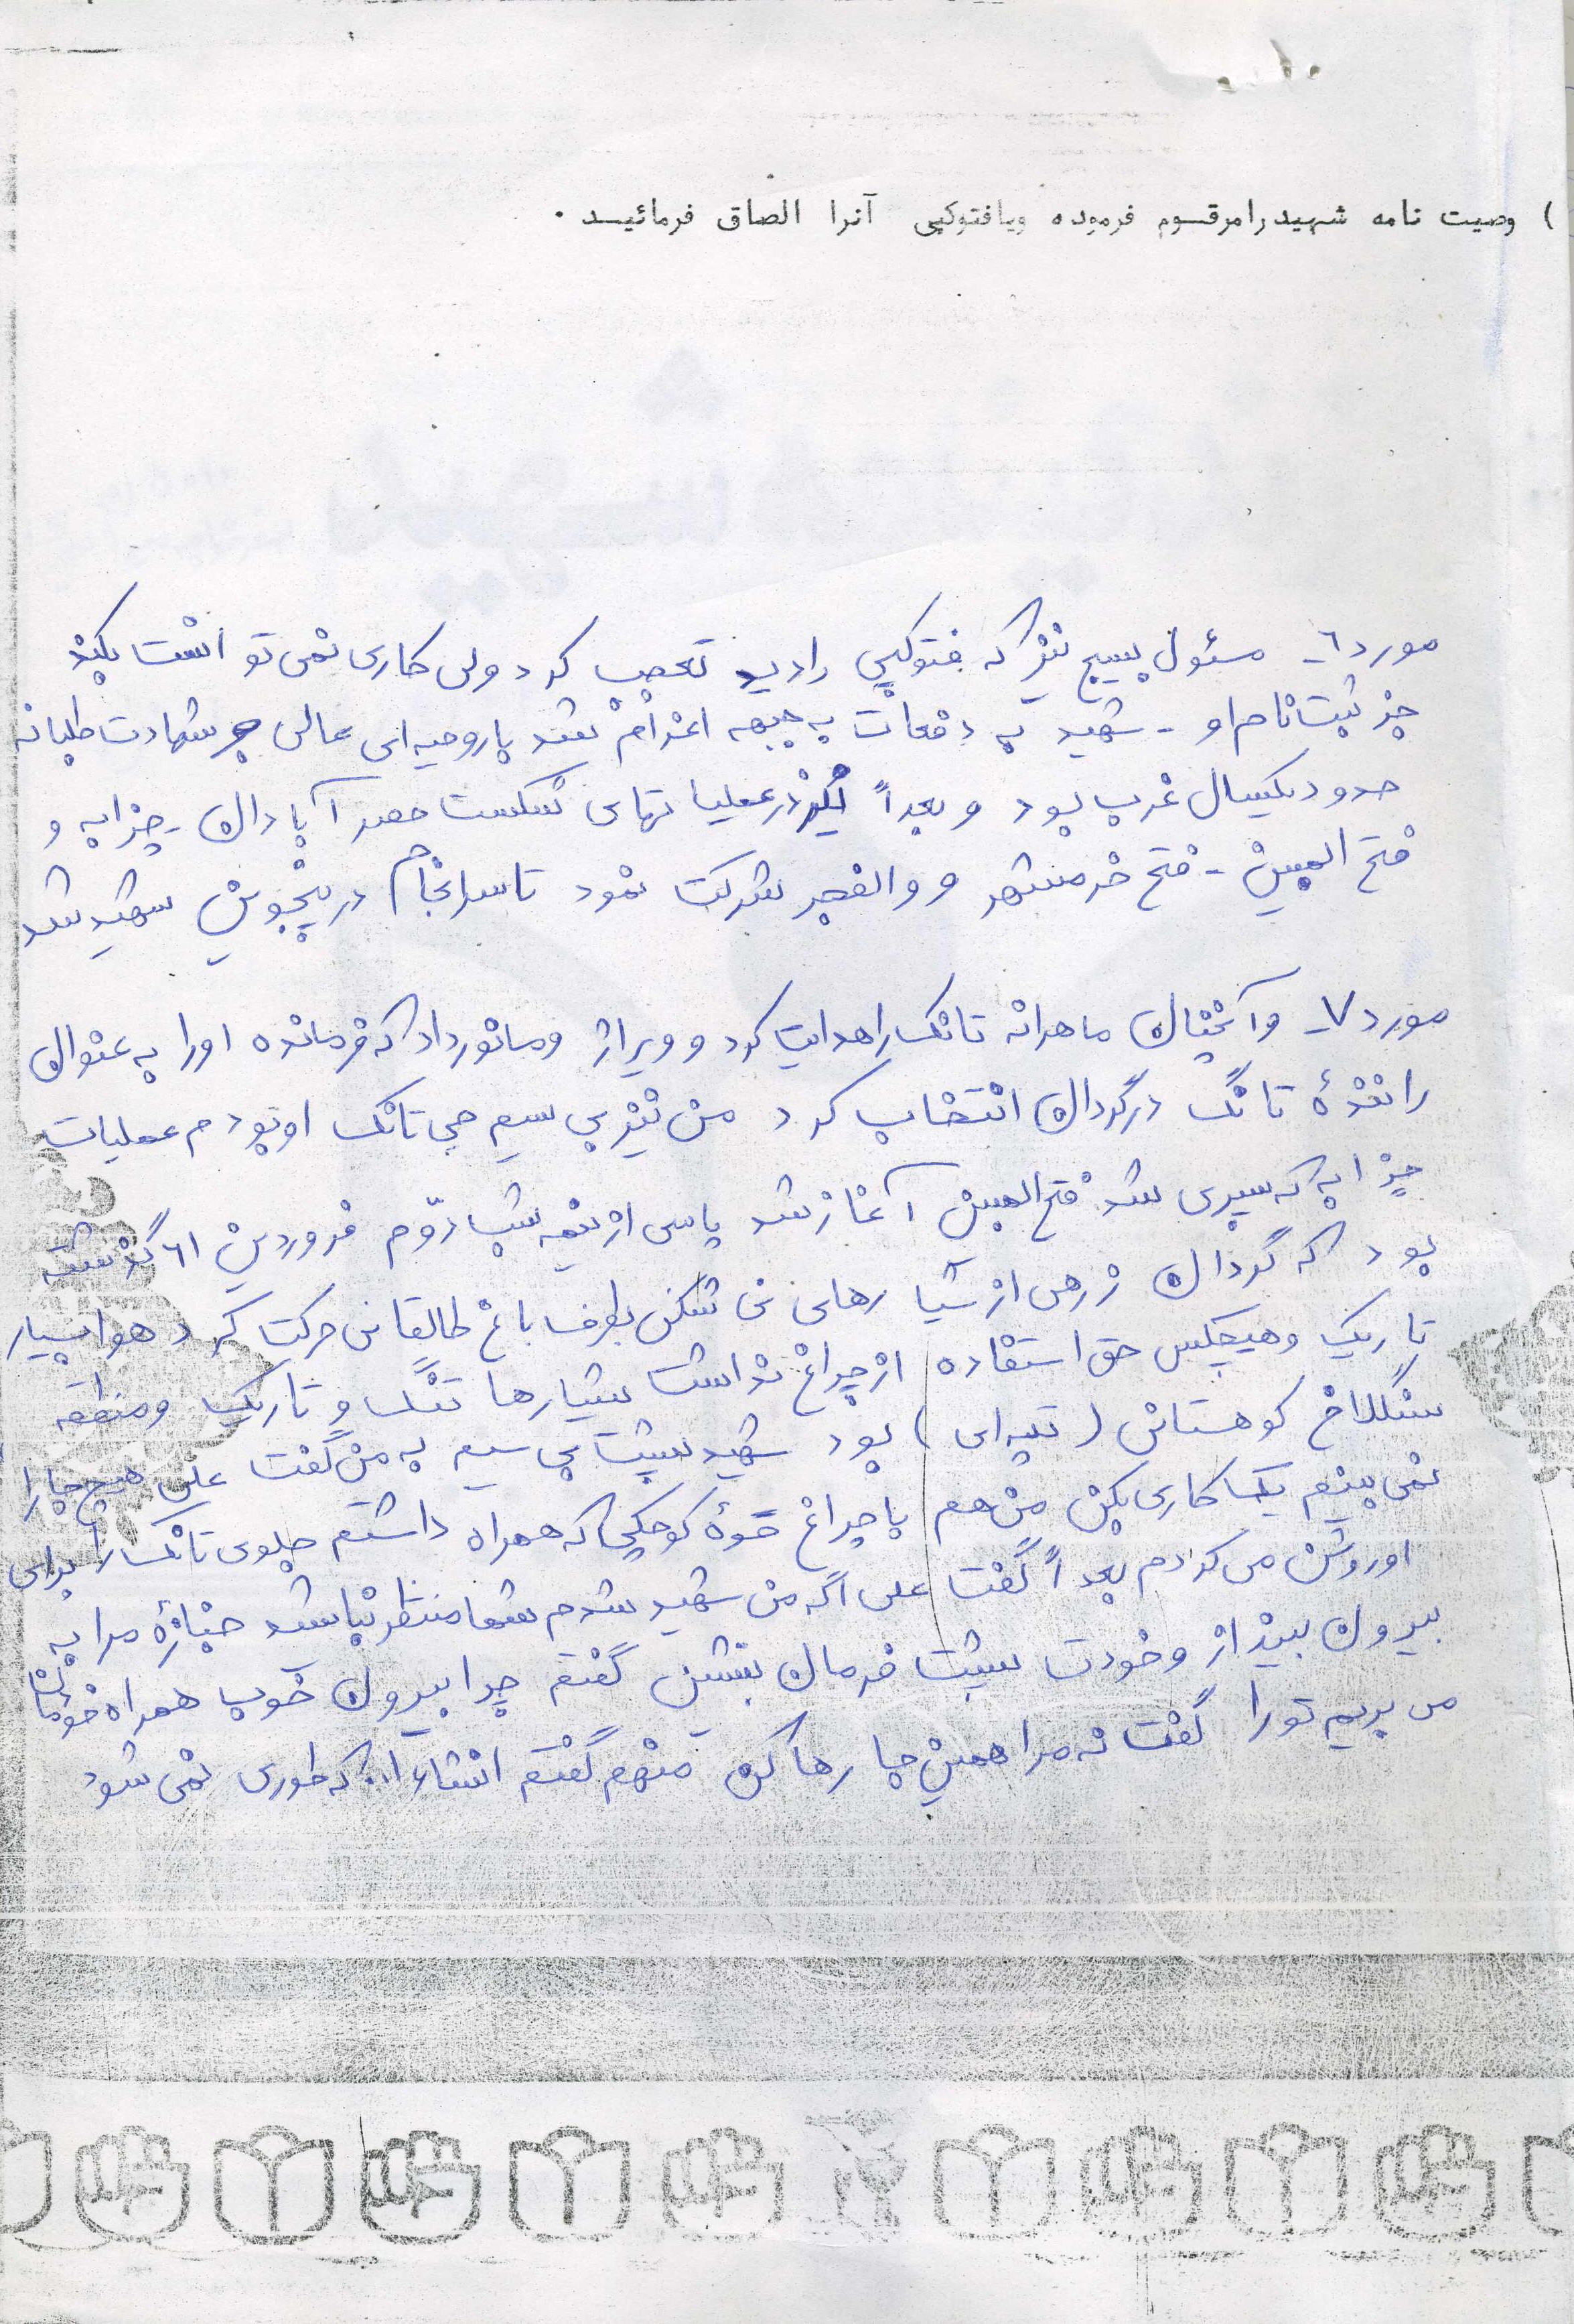 ) وصیت نامه شهید را مرقوم فرموده ویا فتوکپی آنرا الصاق فرمائید .
مورد ٦- مسئول بسیج نیز که فتوکپی را دید تعجب کرد ولی کاری نمی توانست بکند
جز ثبت نام او - شهید به دفعات به جبهه اعزام شد با روحیه ای عالی و شهادت طلبانه
حدود یکسال غرب بود و بعداً نیز در عملیاتهای شکست حصر آبادان - چزابه و
فتح المبین - فتح خرمشهر و والفجر شرکت نمود تا سرانجام در پنجوین شهید شد
مورد ٧- و آنچنان ماهرانه تانک را هدایت کرد و ویراژ و مانور داد که فرمانده او را به عنوان
رانندهٔ تانگ در گردان انتخاب کرد من نیز بی سیم چی تانک او بودم عملیات
چزابه که سپری شد فتح المبین آغاز شد پاسی از نیمه شب دوّم فروردین ٦١ گذشته
بود که گردان زرهی از شیارهای نی شکن بطرف باغ طالقانی حرکت کرد هوا بسیار
تاریک و هیچکس حق استفاده از چراغ نداشت شیارها تنگ و تاریک و منطقه
سنگلاخ کوهستانی ( تپه ای ) بود شهید پشت بی سیم به من گفت علی هیچ جا را
نمی بینم یک کاری بکن من هم با چراغ قوهٔ کوچکی که همراه داشتم جلوی تانک را برای
او روشن می کردم بعداً گفت علی اگه من شهید شدم شما منتظر نباشید جنازهٔ مرا به
بیرون بینداز و خودت پشت فرمان بنشین گفتم چرا بیرون خوب همراه خودمان
می بریم تو را گفت نه مرا همین جا رها کن منهم گفتم انشاءا... که طوری نمی شود